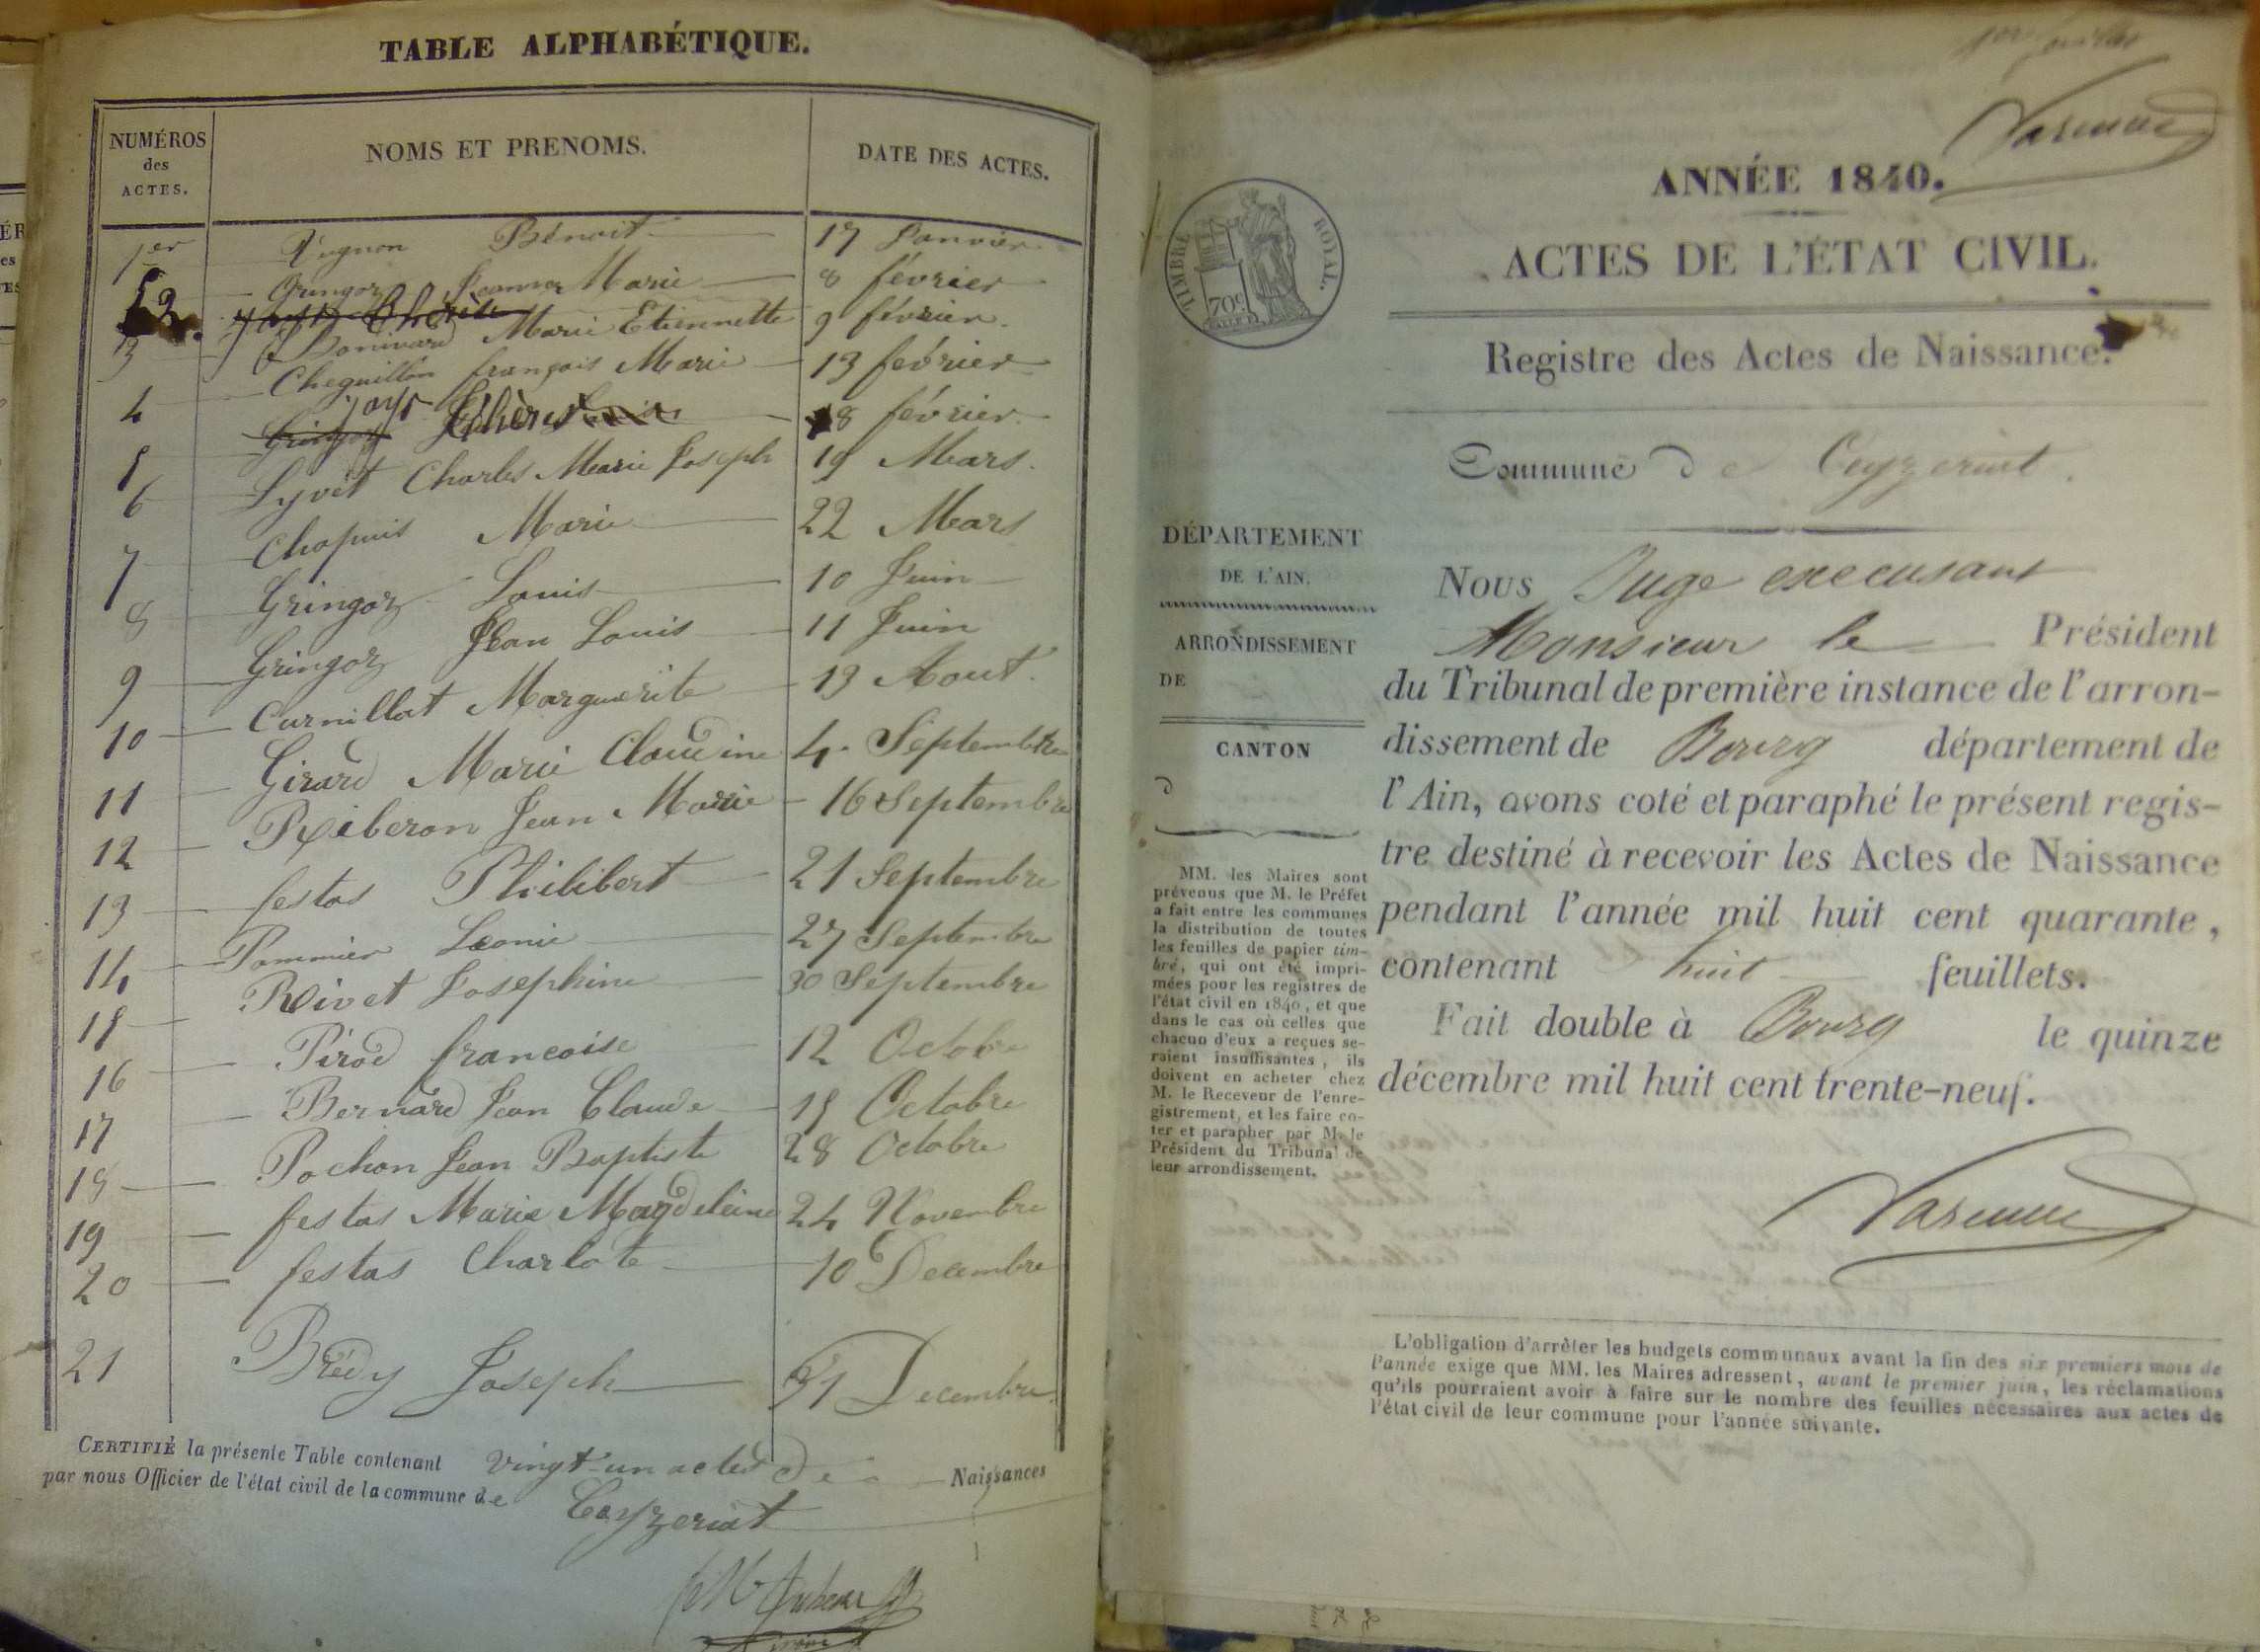 TABLE ALPHABÉTIQUE.
NUMÉROS
des
ACTES.
NOMS ET PRENOMS.
DATE DES ACTES.
1er Benoit 17 Janvier
2 Gringoz Jeanne Marie 8 février
3 Marie Etiennette 9 février.
4 françois Marie 13 février
5 Gringoz Jayr Thérèse 18 février
6 Lyvet Charles Marie Joseph 19 Mars.
7 Chapuis Marie 22 Mars
8 Gringoz Louis 10 Juin
9 Gringoz Jean Louis 11 Juin
10 Curnillat Marguerite 13 Aout.
11 Girard Marie Claudine 4 Septembre
12 Riberon Jean Marie 16 Septembre
13 festas Philibert 21 Septembre
14 Pommier Leonie 27 Septembre
15 Rivet Josephine 30 Septembre
16 Pirod francoise 12 Octobre
17 Bernard Jean Claude 15 Octobre
18 Pochon Jean Baptiste 28 Octobre
19 festas Marie Magdeleine 24 Novembre
20 festas Charlote 10 Decembre
21 Brédy Joseph 31 Decembre
CERTIFIÉ la présente Table contenant vingt-un actes de Naissances
par nous Officier de l'état civil de la commune de Ceyzeriat
Varenne
ANNÉE 1840.
TIMBRE ROYAL.
70c
ACTES DE L'ÉTAT CIVIL.
Registre des Actes de Naissance.
Commune de Ceyzeriat.
DÉPARTEMENT
DE L'AIN.
ARRONDISSEMENT
DE
CANTON
d
MM. les Maires sont
prévenus que M. le Préfet
a fait entre les communes
la distribution de toutes
les feuilles de papier tim-
bré, qui ont été impri-
mées pour les registres de
l'état civil en 1840, et que
dans le cas où celles que
chacun d'eux a reçues se-
raient insuffisantes, ils
doivent en acheter chez
M. le Receveur de l'enre-
gistrement, et les faire co-
ter et parapher par M. le
Président du Tribunal de
leur arrondissement.
Nous Juge excusant
Monsieur le Président
du Tribunal de première instance de l'arron-
dissement de Bourg département de
l'Ain, avons coté et paraphé le présent regis-
tre destiné à recevoir les Actes de Naissance
pendant l'année mil huit cent quarante,
contenant huit feuillets.
Fait double à Bourg le quinze
décembre mil huit cent trente-neuf.
Varenne
L'obligation d'arrêter les budgets communaux avant la fin des six premiers mois de
l'année exige que MM. les Maires adressent, avant le premier juin, les réclamations
qu'ils pourraient avoir à faire sur le nombre des feuilles nécessaires aux actes de
l'état civil de leur commune pour l'année suivante.